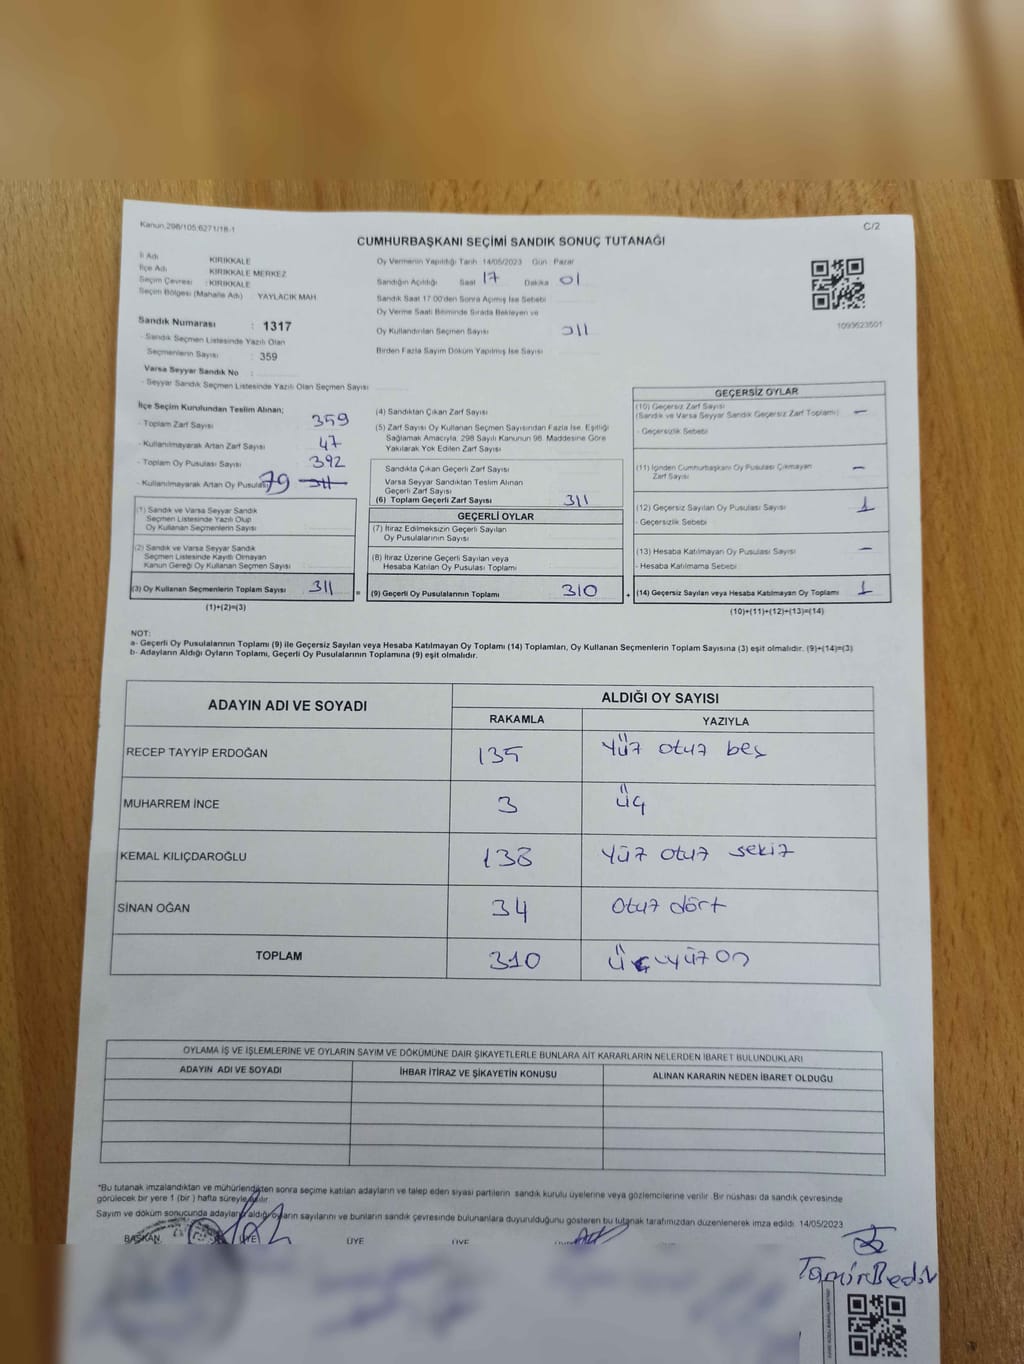 Kanun.298/105.6271/18-1
C/2
CUMHURBAŞKANI SEÇİMİ SANDIK SONUÇ TUTANAĞI
İl Adı KIRIKKALE
İlçe Adı KIRIKKALE MERKEZ
Seçim Çevresi : KIRIKKALE
Seçim Bölgesi (Mahalle Adı) YAYLACIK MAH.
Sandık Numarası : 1317
- Sandık Seçmen Listesinde Yazılı Olan
Seçmenlerin Sayısı : 359
Varsa Seyyar Sandık No :
- Seyyar Sandık Seçmen Listesinde Yazılı Olan Seçmen Sayısı
Oy Vermenin Yapıldığı Tarih 14/05/2023 Gün Pazar
Sandığın Açıldığı Saat 17 Dakika 01
Sandık Saat 17.00'den Sonra Açılmış İse Sebebi
Oy Verme Saati Bitiminde Sırada Bekleyen ve
Oy Kullandırılan Seçmen Sayısı 311
Birden Fazla Sayım Döküm Yapılmış İse Sayısı
1093623501
İlçe Seçim Kurulundan Teslim Alınan;
- Toplam Zarf Sayısı 359
- Kullanılmayarak Artan Zarf Sayısı 47
- Toplam Oy Pusulası Sayısı 392
- Kullanılmayarak Artan Oy Pusulası 79 311
(1) Sandık ve Varsa Seyyar Sandık
Seçmen Listesinde Yazılı Olup
Oy Kullanan Seçmenlerin Sayısı
(2) Sandık ve Varsa Seyyar Sandık
Seçmen Listesinde Kayıtlı Olmayan
Kanun Gereği Oy Kullanan Seçmen Sayısı
(3) Oy Kullanan Seçmenlerin Toplam Sayısı 311
(1)+(2)=(3)
=
(4) Sandıktan Çıkan Zarf Sayısı
(5) Zarf Sayısı Oy Kullanan Seçmen Sayısından Fazla İse, Eşitliği
Sağlamak Amacıyla, 298 Sayılı Kanunun 98. Maddesine Göre
Yakılarak Yok Edilen Zarf Sayısı
Sandıkta Çıkan Geçerli Zarf Sayısı
Varsa Seyyar Sandıktan Teslim Alınan
Geçerli Zarf Sayısı
(6) Toplam Geçerli Zarf Sayısı 311
GEÇERLİ OYLAR
(7) İtiraz Edilmeksizin Geçerli Sayılan
Oy Pusulalarının Sayısı
(8) İtiraz Üzerine Geçerli Sayılan veya
Hesaba Katılan Oy Pusulası Toplamı
(9) Geçerli Oy Pusulalarının Toplamı 310
+
GEÇERSİZ OYLAR
(10) Geçersiz Zarf Sayısı
(Sandık ve Varsa Seyyar Sandık Geçersiz Zarf Toplamı) –
- Geçersizlik Sebebi
(11) İçinden Cumhurbaşkanı Oy Pusulası Çıkmayan
Zarf Sayısı –
(12) Geçersiz Sayılan Oy Pusulası Sayısı 1
- Geçersizlik Sebebi
(13) Hesaba Katılmayan Oy Pusulası Sayısı –
- Hesaba Katılmama Sebebi
(14) Geçersiz Sayılan veya Hesaba Katılmayan Oy Toplamı 1
(10)+(11)+(12)+(13)=(14)
NOT:
a- Geçerli Oy Pusulalarının Toplamı (9) ile Geçersiz Sayılan veya Hesaba Katılmayan Oy Toplamı (14) Toplamları, Oy Kullanan Seçmenlerin Toplam Sayısına (3) eşit olmalıdır. (9)+(14)=(3)
b- Adayların Aldığı Oyların Toplamı, Geçerli Oy Pusulalarının Toplamına (9) eşit olmalıdır.
ADAYIN ADI VE SOYADI
ALDIĞI OY SAYISI
RAKAMLA YAZIYLA
RECEP TAYYİP ERDOĞAN 135 Yüz otuz beş
MUHARREM İNCE 3 üç
KEMAL KILIÇDAROĞLU 138 yüz otuz sekiz
SİNAN OĞAN 34 otuz dört
TOPLAM 310 üçyüz on
OYLAMA İŞ VE İŞLEMLERİNE VE OYLARIN SAYIM VE DÖKÜMÜNE DAİR ŞİKAYETLERLE BUNLARA AİT KARARLARIN NELERDEN İBARET BULUNDUKLARI
ADAYIN ADI VE SOYADI İHBAR İTİRAZ VE ŞİKAYETİN KONUSU ALINAN KARARIN NEDEN İBARET OLDUĞU
*Bu tutanak imzalandıktan ve mühürlendikten sonra seçime katılan adayların ve talep eden siyasi partilerin sandık kurulu üyelerine veya gözlemcilerine verilir. Bir nüshası da sandık çevresinde
görülecek bir yere 1 (bir) hafta süreyle asılır.
Sayım ve döküm sonucunda adayların aldığı oyların sayılarını ve bunların sandık çevresinde bulunanlara duyurulduğunu gösteren bu tutanak tarafımızdan düzenlenerek imza edildi. 14/05/2023
BAŞKAN ÜYE ÜYE ÜYE
Tamir Bedir